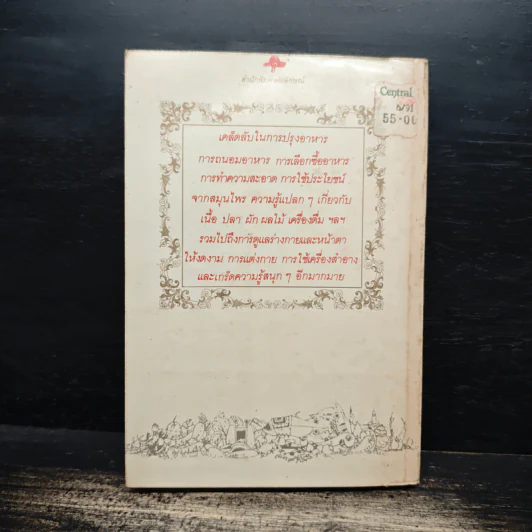 Central
6/91
55-00
เคล็ดลับในการปรุงอาหาร
การถนอมอาหาร การเลือกซื้ออาหาร
การทำความสะอาด การใช้ประโยชน์
จากสมุนไพร ความรู้แปลก ๆ เกี่ยวกับ
เนื้อ ปลา ผัก ผลไม้ เครื่องดื่ม ฯลฯ
รวมไปถึงการดูแลร่างกายและหน้าตา
ให้งดงาม การแต่งกาย การใช้เครื่องสำอาง
และเกร็ดความรู้สนุก ๆ อีกมากมาย